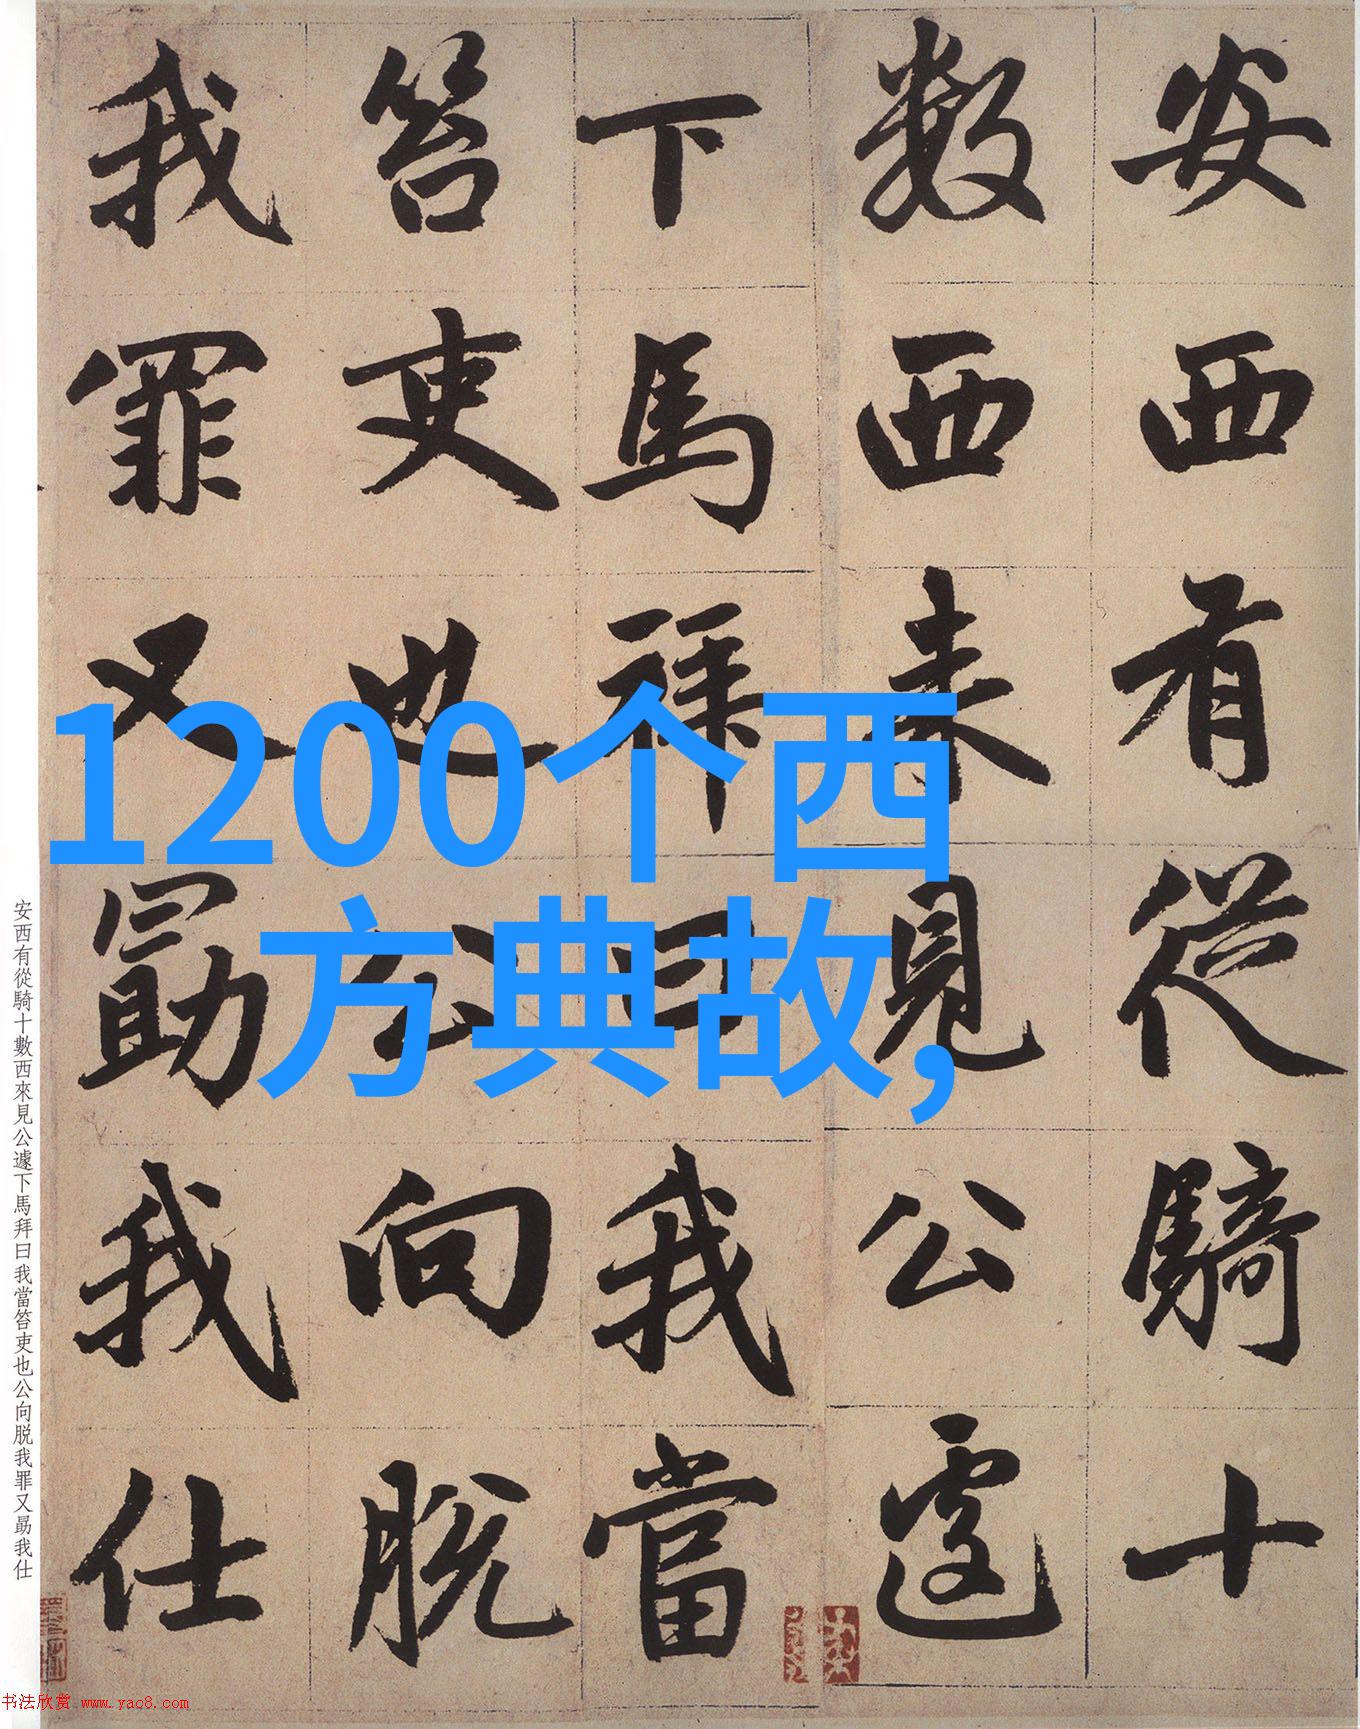 安西有從騎十
數西來見公遽
下馬拜曰我當
笞吏也公向脱
我罪又勗我仕
1200个西
方典故,
安西有從騎十數西來見公遽下馬拜曰我當笞吏也公向脱我罪又勗我仕
书法欣赏 www.yac8.com